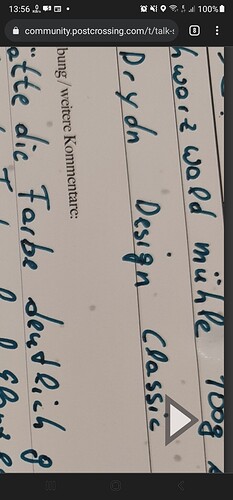 13:56 100%
community.postcrossing.com/t/talk-s 8
hwarzwald mühle
Drydn Design Classic
bung / weitere Kommentare:
ätte die Farbe deutlich